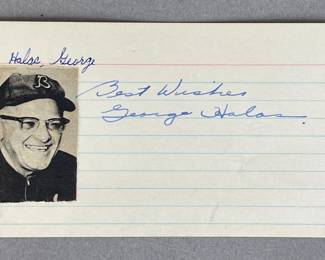 Halas, George
B
Best Wishes
George Halas.